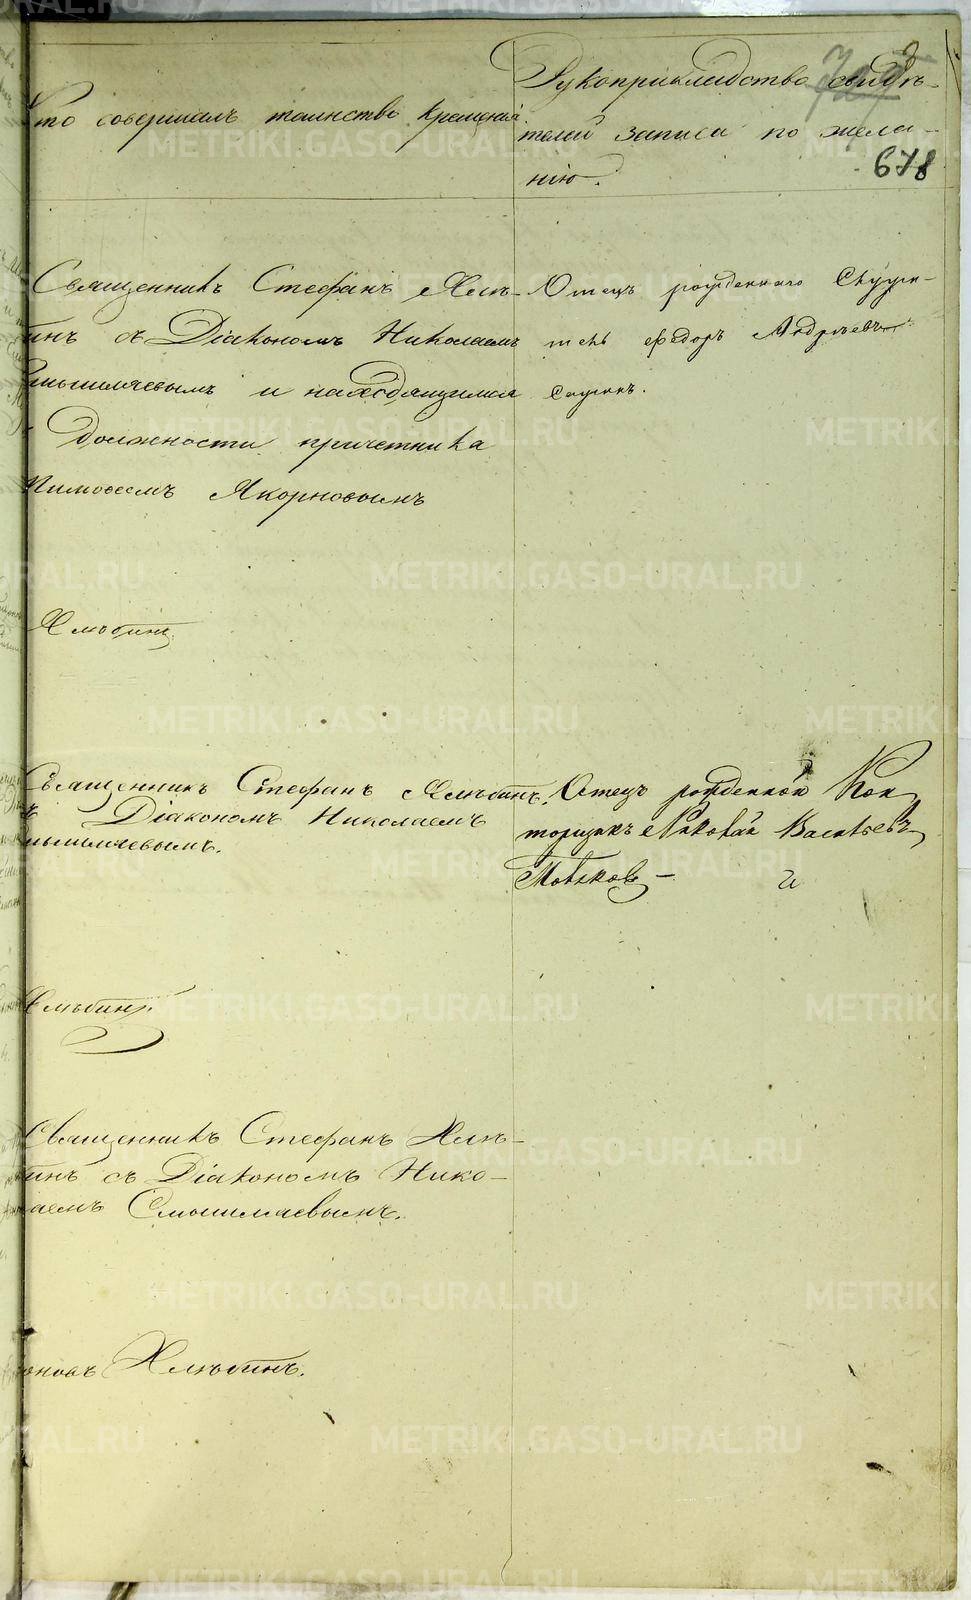 Кто совершалъ таинство крещенія.
Рукоприкладство свидѣ-
телей записи по жела-
нію.
678
Священникъ Стефанъ Хлѣ-
бинъ съ Діакономъ Николаемъ
Смышляевымъ и находящимся
въ должности причетника
Тимовеемъ Якорновымъ
Хлѣбинъ.
Отецъ рожденнаго Служи-
тель Ѳедоръ Андреевъ
Священникъ Стефанъ Хлѣбинъ
съ Діакономъ Николаемъ
Смышляевымъ.
Отецъ рожденной Кон
торщикъ Николай Васильевъ
Хлѣбинъ.
Священникъ Стефанъ Хлѣ-
бинъ съ Діакономъ Нико-
лаемъ Смышляевымъ.
Хлѣбинъ.
METRIKI.GASO-URAL.RU